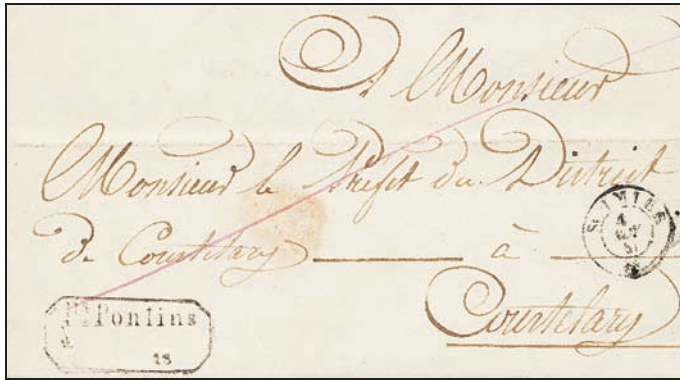 A Monsieur
Monsieur le Préfet du District
de Courtelary à
Courtelary
St. IMIER
Pontins
18